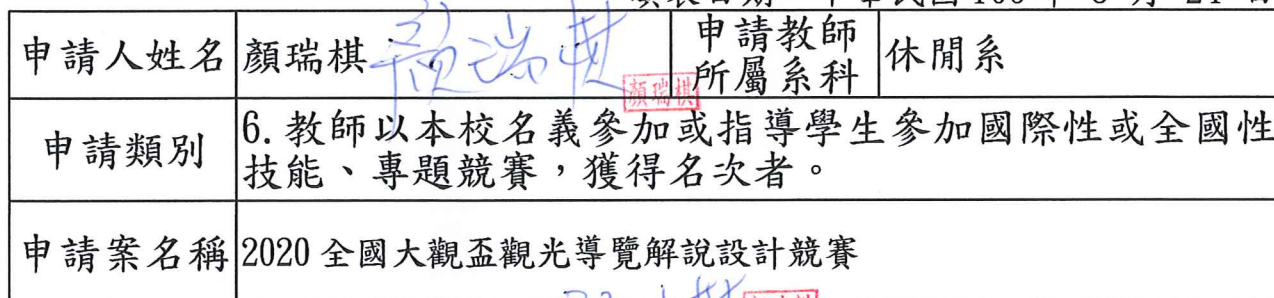 申請人姓名 顏瑞棋 顏瑞棋 顏瑞棋 申請教師所屬系科 休閒系
申請類別 6.教師以本校名義參加或指導學生參加國際性或全國性
技能、專題競賽，獲得名次者。
申請案名稱 2020全國大觀盃觀光導覽解說設計競賽